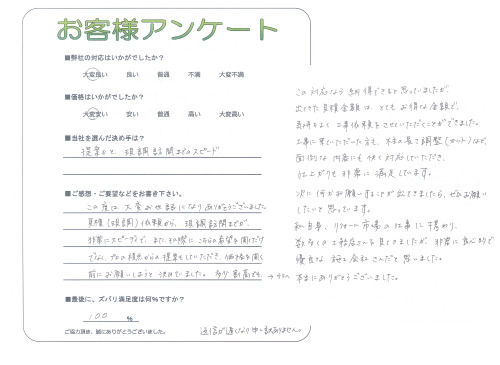 お客様アンケート
■弊社の対応はいかがでしたか?
大変良い 良い 普通 不満 大変不満
■価格はいかがでしたか?
大変安い 安い 普通 高い 大変高い
■当社を選んだ決め手は?
提案力と、現調訪問までのスピード
■ご感想・ご要望などをお書き下さい。
この度は大変お世話になりありがとうございました。
見積(現調)依頼から、現調訪問までが、
非常にスピーディで、またその際にこちらの希望を聞くだけ
でなく、プロの視点からの提案もしていただき、価格を聞く
前にお願いしようと決めていました。多少割高でも、→
この対応なら納得できると思っていましたが、
出てきた見積金額は、とてもお得な金額で、
気持ちよく工事依頼をさせていただくことができました。
工事に来ていただいた方も、柱の長さ調整(カット)など、
面倒な内容にも快く対応していただき、
仕上がりも非常に満足しています。
次に何かお願いすることが出てきましたら、ぜひお願い
したいと思っています。
私自身、リフォーム市場の仕事に携わり、
数多くの工務店さんを見てきましたが、非常に良心的で
優良な施工会社さんだと思いました。
本当にありがとうございました。
■最後に、ズバリ満足度は何%ですか?
100 %
ご協力頂き、誠にありがとうございました。
返信が遅くなり申し訳ありません。